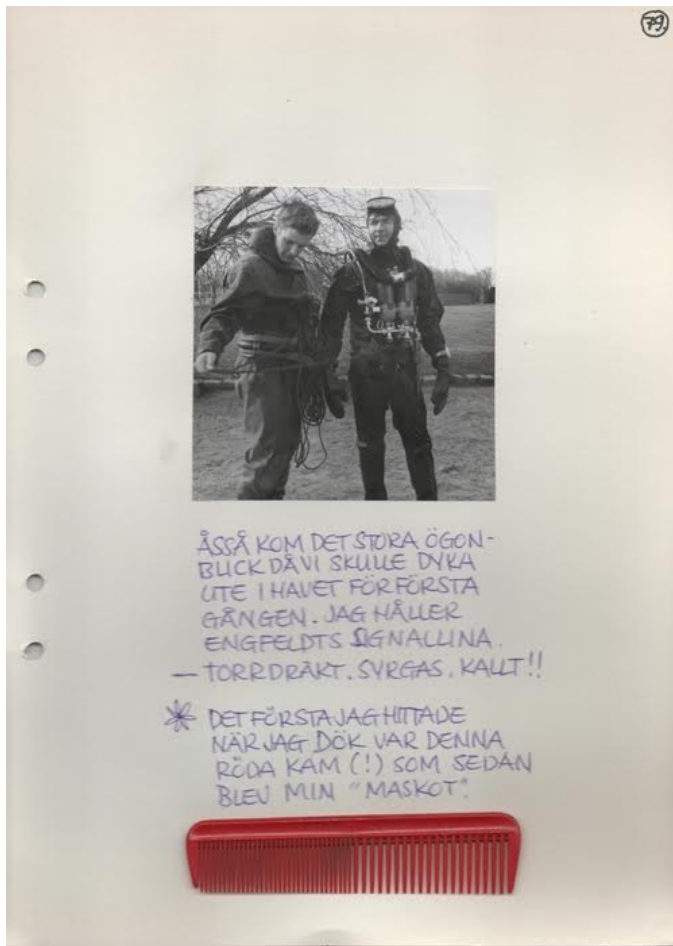 79.
ÅSSÅ KOM DET STORA ÖGON-
BLICK DÅ VI SKULLE DYKA
UTE I HAVET FÖR FÖRSTA
GÅNGEN. JAG HÅLLER
ENGFELDTS SIGNALLINA.
— TORRDRÄKT. SYRGAS. KALLT!!
* DET FÖRSTA JAG HITTADE
NÄR JAG DÖK VAR DENNA
RÖDA KAM (!) SOM SEDAN
BLEV MIN "MASKOT".